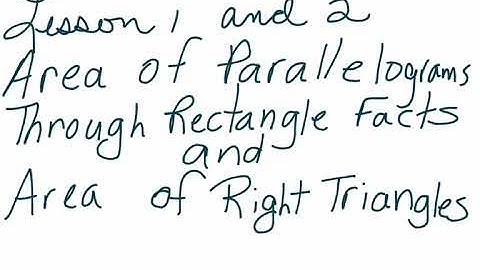 Lesson 1 and 2
Area of Parallelograms
Through Rectangle Facts
and
Area of Right Triangles